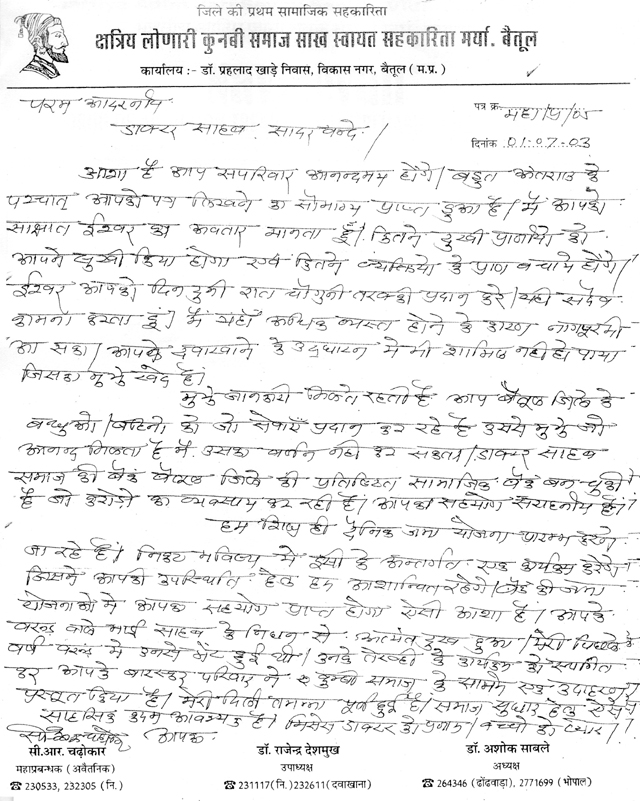 जिले की प्रथम सामाजिक सहकारिता
क्षत्रिय लोणारी कुनबी समाज साख स्वायत सहकारिता मर्या. बैतूल
कार्यालय :- डॉ. प्रहलाद खाड़े निवास, विकास नगर, बैतूल ( म.प्र. )
परम आदरणीय
पत्र क्र.
डाक्टर साहब, सादर वन्दे/
दिनांक 01.07.03
आशा है आप सपरिवार आनन्दमय होंगे/ बहुत अंतराल के
पश्चात् आपको पत्र लिखने का सौभाग्य प्राप्त हुआ है/ मैं आपको
साक्षात ईश्वर का अवतार मानता हूँ/ कितने दुखी प्राणियों को
आपने सुखी किया होगा एवं कितने व्यक्तियो के प्राण बचाये होंगे/
ईश्वर आपको दिन दुनी रात चौगुनी तरक्की प्रदान करे/ यही सदैव
कामना करता हूं/ मैं यहाँ अधिक व्यस्त होने के कारण नागपुर भी
आ सका/ आपके दवाखाने के उद्घाटन मे भी शामिल नही हो पाया
जिसका मुझे खेद है/
मुझे जानकारी मिलते रहती है आप बैतूल जिले के
बन्धुओ/ बहिनो को जो सेवाएँ प्रदान कर रहे है उससे मुझे जो
आनन्द मिलता है मैं उसका वर्णन नही कर सकता/ डाक्टर साहब
समाज की बैंक बैतूल जिले की प्रतिष्ठित सामाजिक बैंक बन चुकी
है जो करोड़ो का व्यवसाय कर रही है/ आपका सहयोग सराहनीय है/
हम शिघ्र ही दैनिक जमा योजना प्रारम्भ करने
जा रहे है/ निकट भविष्य मे इसी के अन्तर्गत एक कार्यक्रम करेंगे
जिसमे आपकी उपस्थिति हेतु हम आशान्वित रहेंगे/ बैंक की जमा
योजनाओ मे आपका सहयोग प्राप्त होगा ऐसी आशा है/ आपके
वरूड वाले भाई साहब के निधन से अत्यंत दुख हुआ/ मेरी पिछले
वर्ष वरूड मे उनसे भेंट हुई थी/ उनके तेरव्ही के कार्यक्रम को स्थगित
कर आपके बारस्कर परिवार ने कुनबी समाज के सामने एक उदाहरण
प्रस्तुत किया है/ मेरी दिली तमन्ना पूर्ण हुई है/ समाज सुधार हेतु ऐसे
साहसिक कदम आवश्यक है/ मिसेस डाक्टर को प्रणाम/ बच्चो को प्यार/
आपका
सी.आर. चढ़ोकार
डॉ. राजेन्द्र देशमुख
डॉ. अशोक साबले
महाप्रबन्धक (अवैतनिक)
उपाध्यक्ष
अध्यक्ष
☎ 230533, 232305 (नि.)
☎ 231117(नि.)232611(दवाखाना)
☎ 264346 (ढोंढवाड़ा), 2771699 (भोपाल)